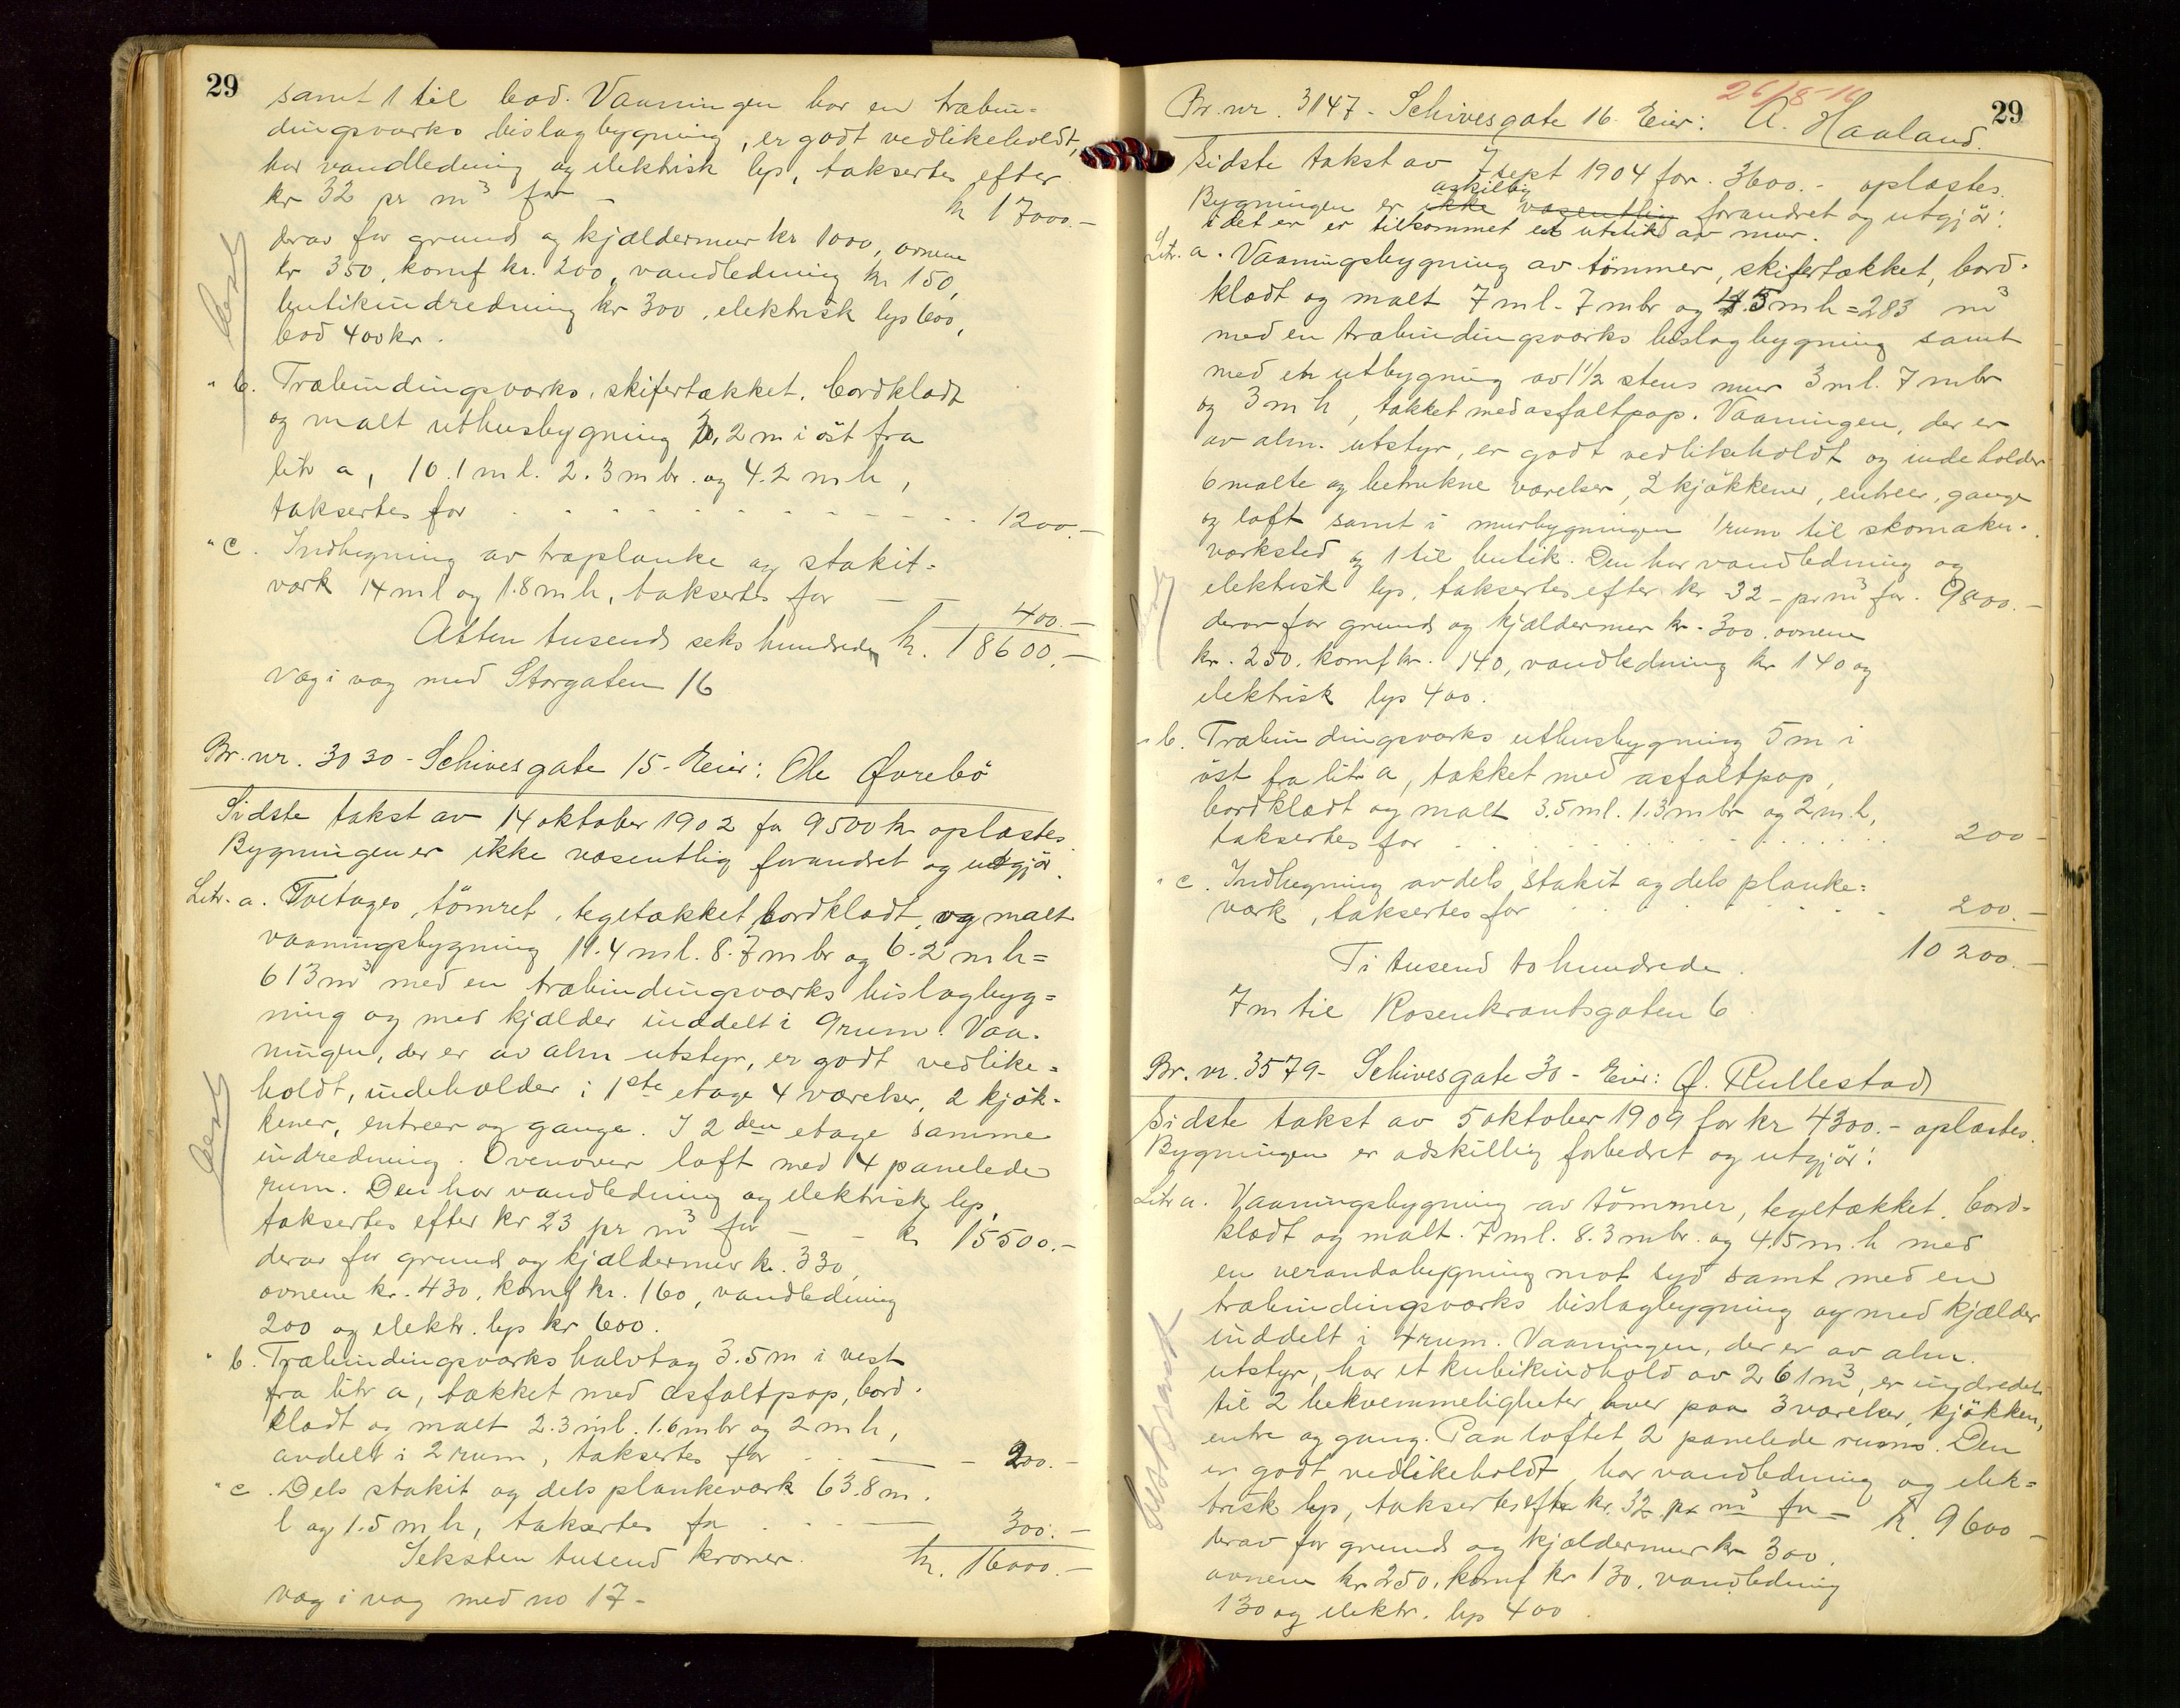 29
samt 1 til bod. Vaaningen har en træbin-
dingsværks bislagbygning, er godt vedlikeholdt,
har vandledning og elektrisk lys, taksertes efter
kr 32 pr m³ for – kr 17000.-
derav for grund og kjældermur kr 1000, ovnene
kr 350, komf kr. 200, vandledning kr 150,
butikindredning kr 300, elektrisk lys 600,
bod 400 kr.
" b. Træbindingsværks, skifertækket, bordklædt
og malt uthusbygning 2 m i öst fra
litr a, 10.1 m l. 2.3 m br. og 4.2 m h,
taksertes for 1200.-
" c. Indhegning av træplanke og stakit-
værk 14 m l og 1.8 m h, taksertes for – – 400.-
Atten tusend seks hundrede kr. 18600.-
væg i væg med Storgaten 16
Br. nr. 3030 - Schivesgate 15 - Eier: Ole Øvrebö
Sidste takst av 14 oktober 1902 for 9500 kr oplæstes.
Bygningen er ikke væsentlig forandret og utgjör.
Litr. a. Toetages, tömret, tegltækket, bordklædt og malt
vaaningsbygning 11.4 m l. 8.7 m br og 6.2 m h =
613 m³ med en træbindingsværks bislagbyg=
ning og med kjælder inddelt i 9 rum. Vaa-
ningen, der er av alm utstyr, er godt vedlike=
holdt, indeholder i 1ste etage 4 værelser, 2 kjök-
kener, entreer og gange. I 2den etage samme
indredning. Ovenover loft med 4 panelede
rum. Den har vandledning og elektrisk lys,
taksertes efter kr 23 pr m³ for – – kr 15500.-
derav for grund og kjældermur kr. 330,
ovnene kr. 430, komf kr. 160, vandledning
200 og elektr. lys kr 600.
" b. Træbindingsværks halvtag 3.5 m i vest
fra litr a, tækket med asfaltpap, bord-
klædt og malt 2.3 m l. 1.6 m br og 2 m h,
avdelt i 2 rum, taksertes for – – 200.-
" c. Dels stakit og dels plankeværk 63.8 m.
l og 1.5 m h, taksertes for – 300.-
Seksten tusend kroner. kr. 16000.-
væg i væg med no 17 -
26/8-16
29
Br. nr. 3147 - Schivesgate 16. Eier: A. Haaland.
Sidste takst av 7 sept 1904 for 3600.- oplæstes.
adskillig
Bygningen er ikke væsentlig forandret og utgjör:
idet er er tilkommet et utstik av mur.
Litr. a. Vaaningsbygning av tömmer, skifertækket, bord-
klædt og malt 7 m l - 7 m br og 4.5 m h = 283 m³
med en træbindingsværks bislagbygning samt
med en utbygning av 1½ stens mur 3 m l. 7 m br
og 3 m h, tækket med asfaltpap. Vaaningen, der er
av alm. utstyr, er godt vedlikeholdt og indeholder
6 malte og betrukne værelser, 2 kjökkener, entreer, gange
og loft samt i murbygningen 1 rum til skomaker-
værksted og 1 til butik. Den har vandledning og
elektrisk lys, taksertes efter kr 32 - pr m³ for 9800.-
derav for grund og kjældermur kr. 300, ovnene
kr. 250, komf kr. 140, vandledning kr 140 og
elektrisk lys 400.
" b. Træbindingsværks uthusbygning 5 m i
öst fra litr a, tækket med asfaltpap,
bordklædt og malt 3.5 m l. 1.3 m br og 2 m h,
taksertes for 200 -
" c. Indhegning av dels stakit og dels planke=
værk, taksertes for 200.-
Ti tusend to hundrede. 10 200.-
7 m til Rosenkrantsgaten 6.
Br. nr. 3579 - Schivesgate 30 - Eier: Ø. Rullestad
Sidste takst av 5 oktober 1909 for kr 4300.- oplæstes.
Bygningen er adskillig forbedret og utgjör:
Litr a. Vaaningsbygning av tömmer, tegltækket, bord-
klædt og malt. 7 m l. 8.3 m br. og 4.5 m. h med
en verandabygning mot syd samt med en
træbindingsværks bislagbygning og med kjælder
inddelt i 4 rum. Vaaningen, der er av alm.
utstyr, har et kubikindhold av 261 m³, er indredet
til 2 bekvemmeligheter, hver paa 3 værelser, kjökken,
entre og gang. Paa loftet 2 panelede rum. Den
er godt vedlikeholdt, har vandledning og elek=
trisk lys, taksertes efter kr. 32 pr m³ for – kr. 9600 -
derav for grund og kjældermur kr 300,
ovnene kr 250, komf kr 130, vandledning
130 og elektr. lys 400.